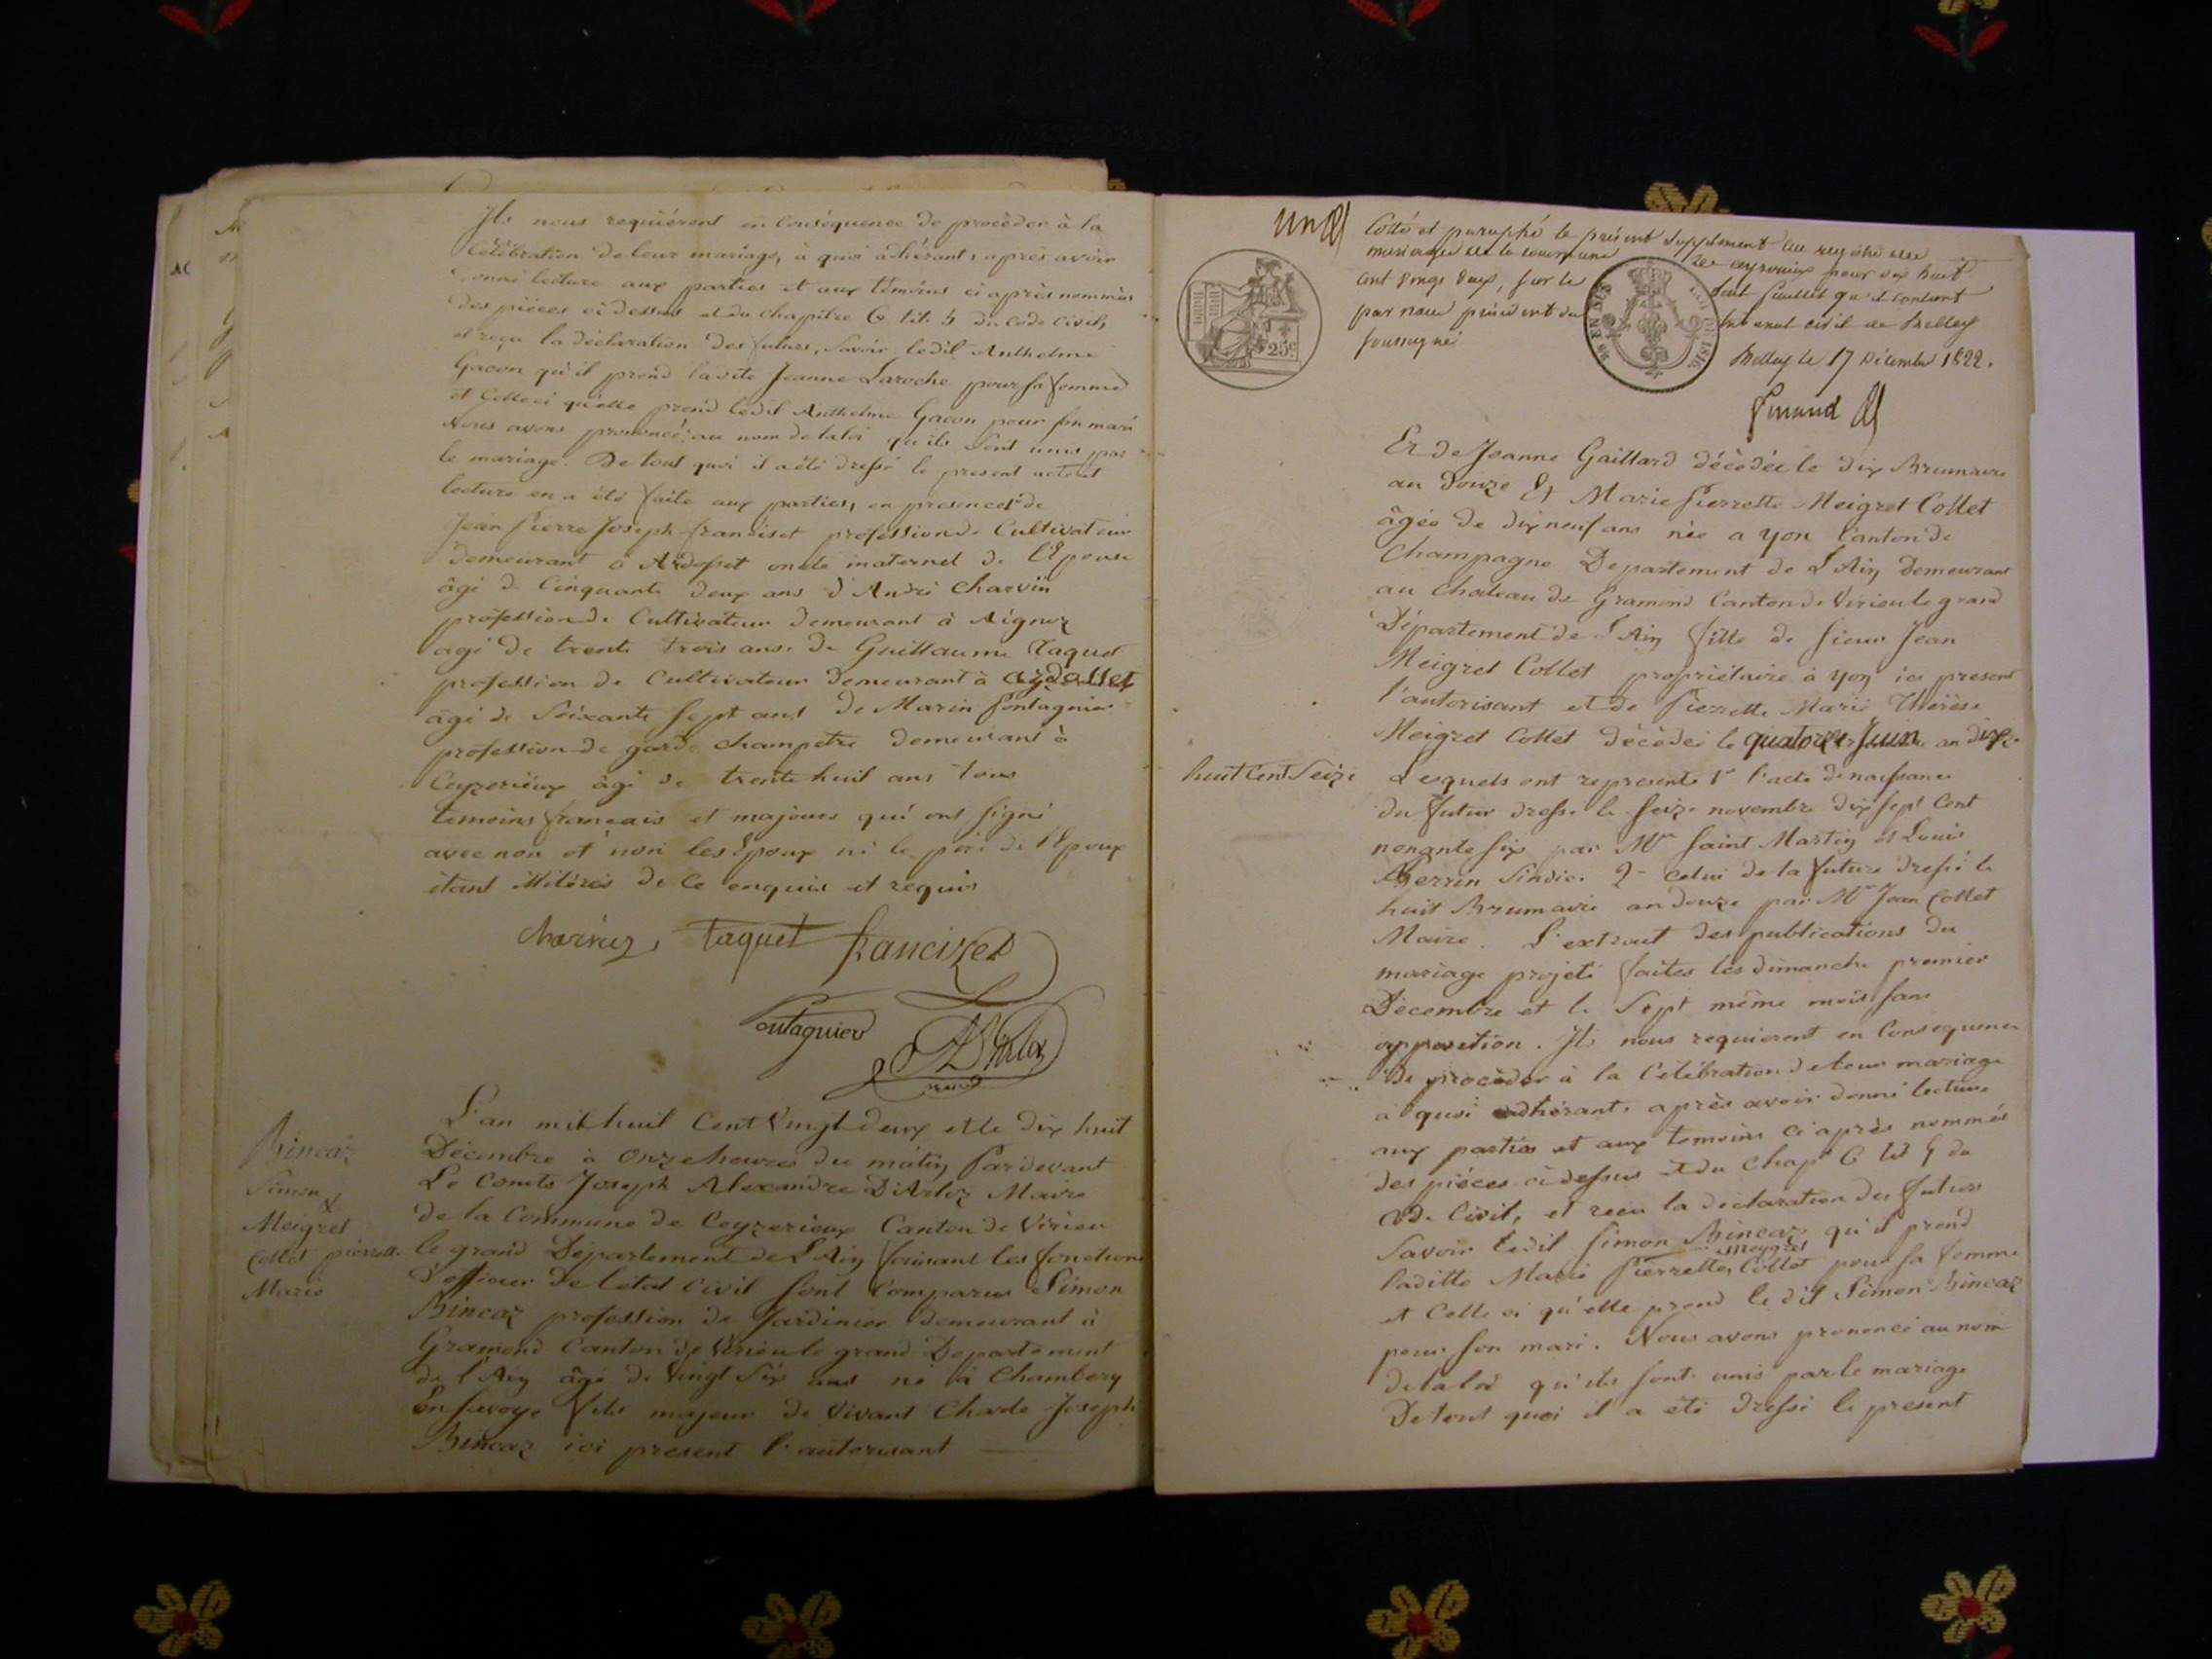 Ils nous requièrent en Conséquence de procèder à la
Célébration de leur mariage, à quoi adhérant, après avoir
donné lecture aux parties et aux témoins ci après nommés
des pièces ci dessus et du chapitre 6 tit. 5 du Code Civil,
et reçu la déclaration des futurs, Savoir ledit Anthelme
Gacon qu'il prend ladite Jeanne Laroche pour sa femme
et Celle ci qu'elle prend ledit Anthelme Gacon pour son mari
Nous avons prononcé au nom de la loi qu'ils Sont unis par
le mariage. De tout quoi il a été dressé le present acte et
lecture en a été faite aux parties, en presence de
Jean Pierre Joseph franciset profession de Cultivateur
demeurant à Ardosset oncle maternel de l'Epouse
âgé de Cinquante deux ans d'André Charvin
profession de Cultivateur demeurant à Aignoz
agé de trente trois ans. de Guillaume Taquet
profession de Cultivateur demeurant à
âgé de Soixante Sept ans de Marin Fontagnier
profession de garde champetre demeurant à
Ceyzerieux âgé de trente huit ans tous
temoins français et majeurs qui ont signé
avec nou et non les Epoux ni le père de l'Epoux
étant illitérés de ce enquis et requis
Charvin, taquet francizet
Fontagnier
D'Arloz
maire
Bincaz
Simon &
Meigret
Collet pierrette
Marie
L'an mil huit Cent Vingt deux et le dix huit
Décembre à Onze heures du matin Par devant
Le Comte Joseph Alexandre D'Arloz Maire
de la Commune de Ceyzerieux Canton de Virieu
le grand Département de L'Ain faisant les fonctions
d'officier de l'état Civil sont Comparus Simon
Bincaz profession de Jardinier demeurant à
Gramond Canton de Virieu le grand Departement
de l'Ain âgé de Vingt Six ans né à Chambery
En Savoye fils majeur de Vivant Charle Joseph
Bincaz ici present l'autorisant
un
Cotté et paraphé le présent Supplement au registre des
mariages de la commune de ceyzerieux pour dix huit
cent vingt deux, sur le seul feuillet qu'il contient
par nous président du tribunal civil de Belley
soussigné
Belley le 17 Décembre 1822.
25c
EN SUS
LOI DE 1816
Et de Jeanne Gaillard décèdée le dix Brumaire
an Douze Et Marie Pierrette Meigret Collet
âgée de dix neuf ans née a yon Canton de
Champagne Departement de L'Ain Demeurant
au Chateau de Gramond Canton de Virieu le grand
Département de L'Ain fille de Sieur Jean
Meigret Collet propriétaire à yon ici present
l'autorisant et de Pierrette Marie Thérèse
Meigret Collet décèdée le quatorze Juin an dix
huit Cent Seize
Lesquels ont represente 1° l'acte de naissance
du futur dressé le Seize novembre dix sept Cent
nonante six par Mr Saint Martin et Louis
Perrin Sindic. 2° celui de la future dressé le
huit Brumaire an douze par Mr Jean Collet
Maire. L'extrait des publications du
mariage projeté faites les dimanche premier
Décembre et le Sept même mois sans
opposition. Ils nous requierent en Consequence
de procèder à la Célébration de leur mariage
à quoi adhérant, après avoir donné lecture
aux parties et aux temoins ci après nommés
des pièces ci dessus et du Chapre 6 tit 5 du
Code Civil, et reçu la declaration des futurs
Savoir ledit Simon Bincaz qu'il prend
Meygret
laditte Marie Pierrette Collet pour sa femme
et Celle ci qu'elle prend le dit Simon Bincaz
pour son mari. Nous avons prononcé au nom
de la loi qu'ils sont unis par le mariage
De tout quoi il a été dressé le present